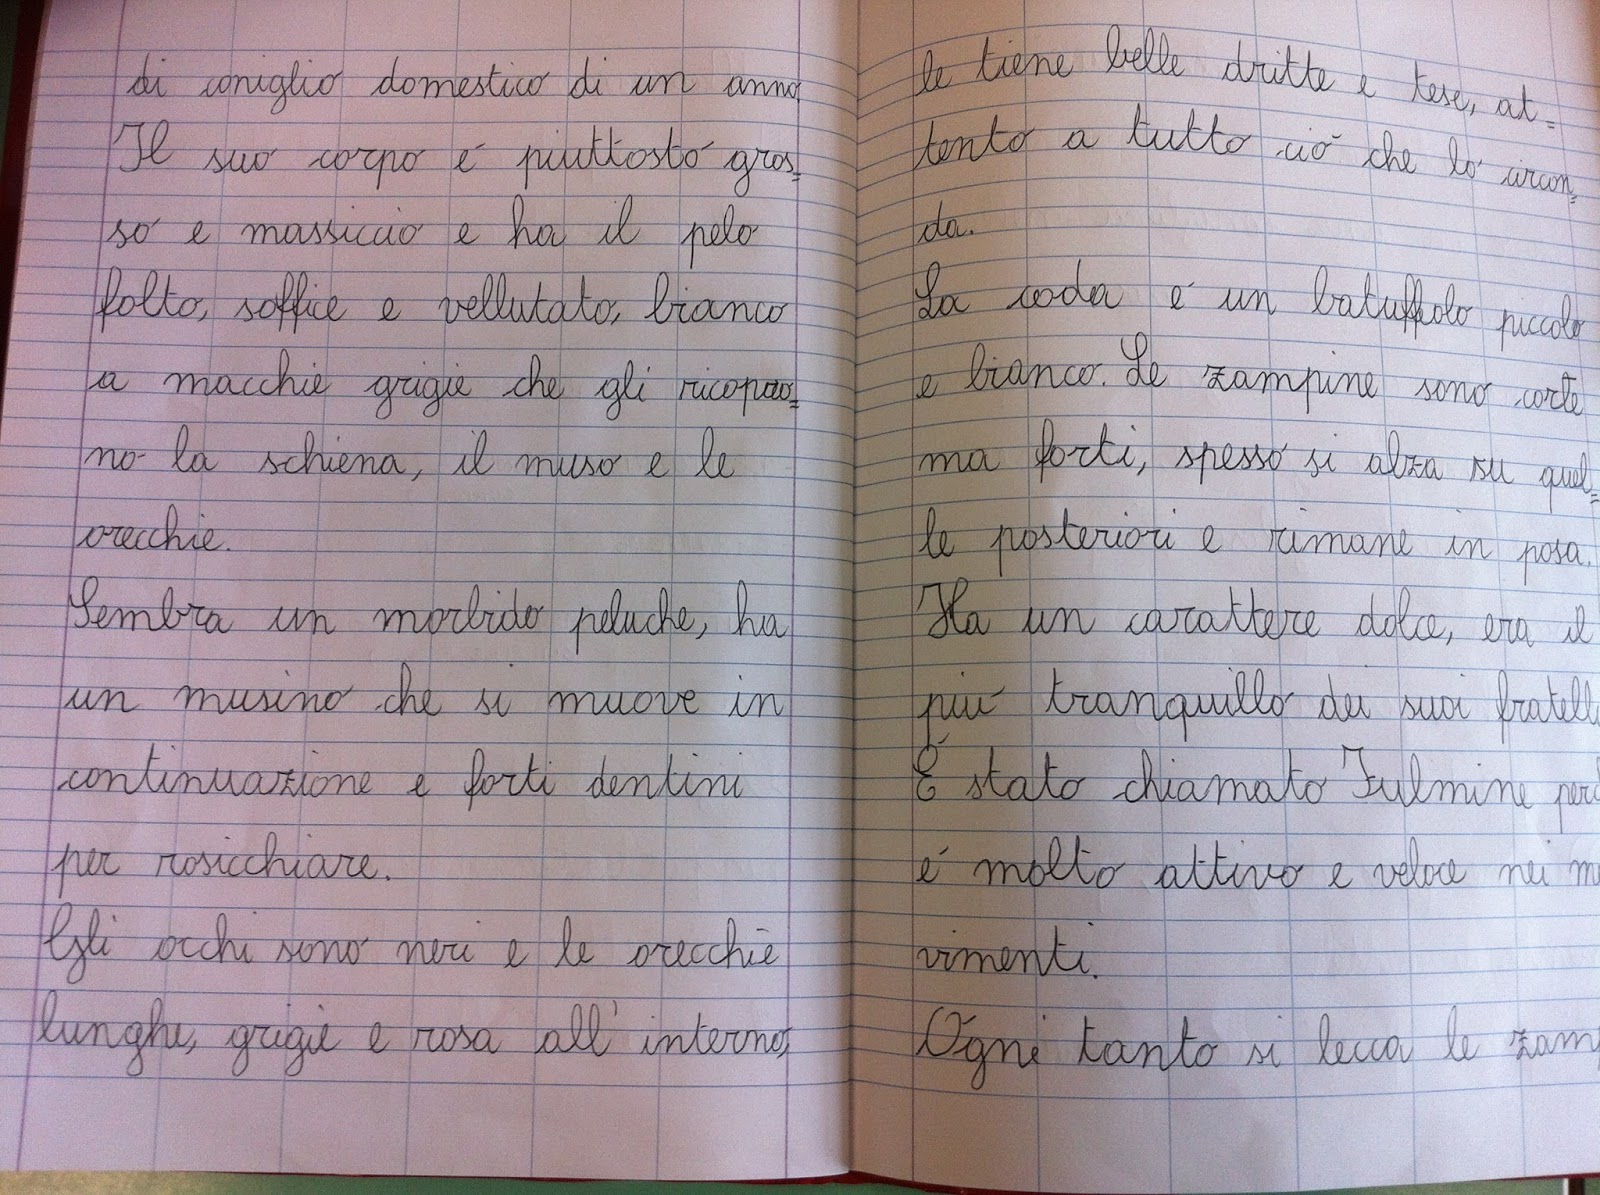 di coniglio domestico di un anno.
Il suo corpo é piuttosto gros=
so e massiccio e ha il pelo
folto, soffice e vellutato, bianco
a macchie grigie che gli ricopro=
no la schiena, il muso e le
orecchie.
Sembra un morbido peluche, ha
un musino che si muove in
continuazione e forti dentini
per rosicchiare.
Gli occhi sono neri e le orecchie
lunghe, grigie e rosa all'interno,
le tiene belle dritte e tese, at=
tento a tutto ció che lo circon=
da.
La coda é un batuffolo piccolo
e bianco. Le zampine sono corte
ma forti, spesso si alza su quel=
le posteriori e rimane in posa.
Ha un carattere dolce, era il
piú tranquillo dei suoi fratelli
É stato chiamato Fulmine perc
é molto attivo e veloce nei m
vimenti.
Ogni tanto si lecca le zam